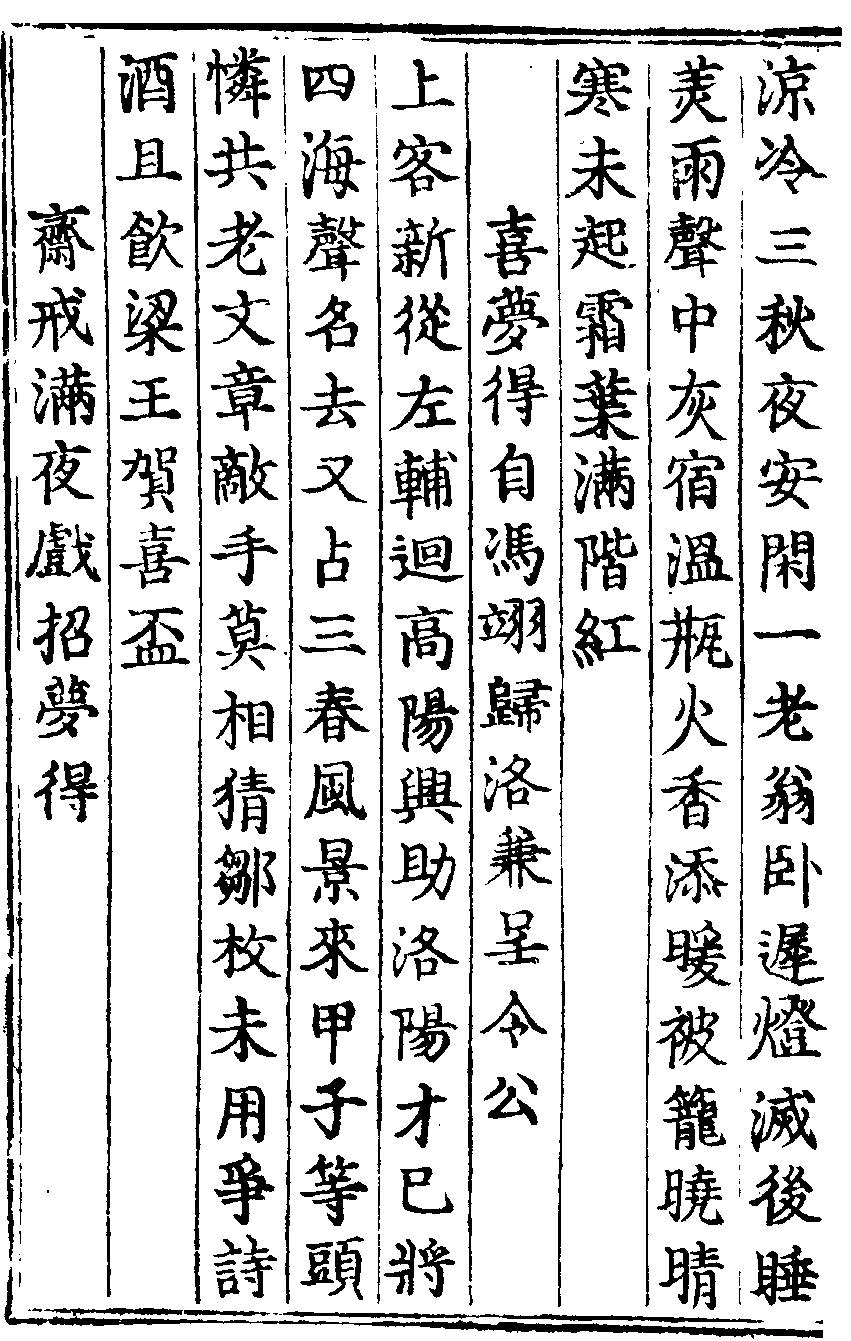 涼冷三秋夜安閑一老翁卧遲燈滅後睡
羙雨聲中灰宿溫瓶火香添暖被籠曉晴
寒未起霜葉滿階紅
喜夢得自馮翊歸洛兼呈令公
上客新從左輔迴高陽興助洛陽才已將
四海聲名去又占三春風景來甲子等頭
憐共老文章敵手莫相猜鄒枚未用爭詩
酒且飲梁王賀喜盃
齋戒滿夜戲招夢得